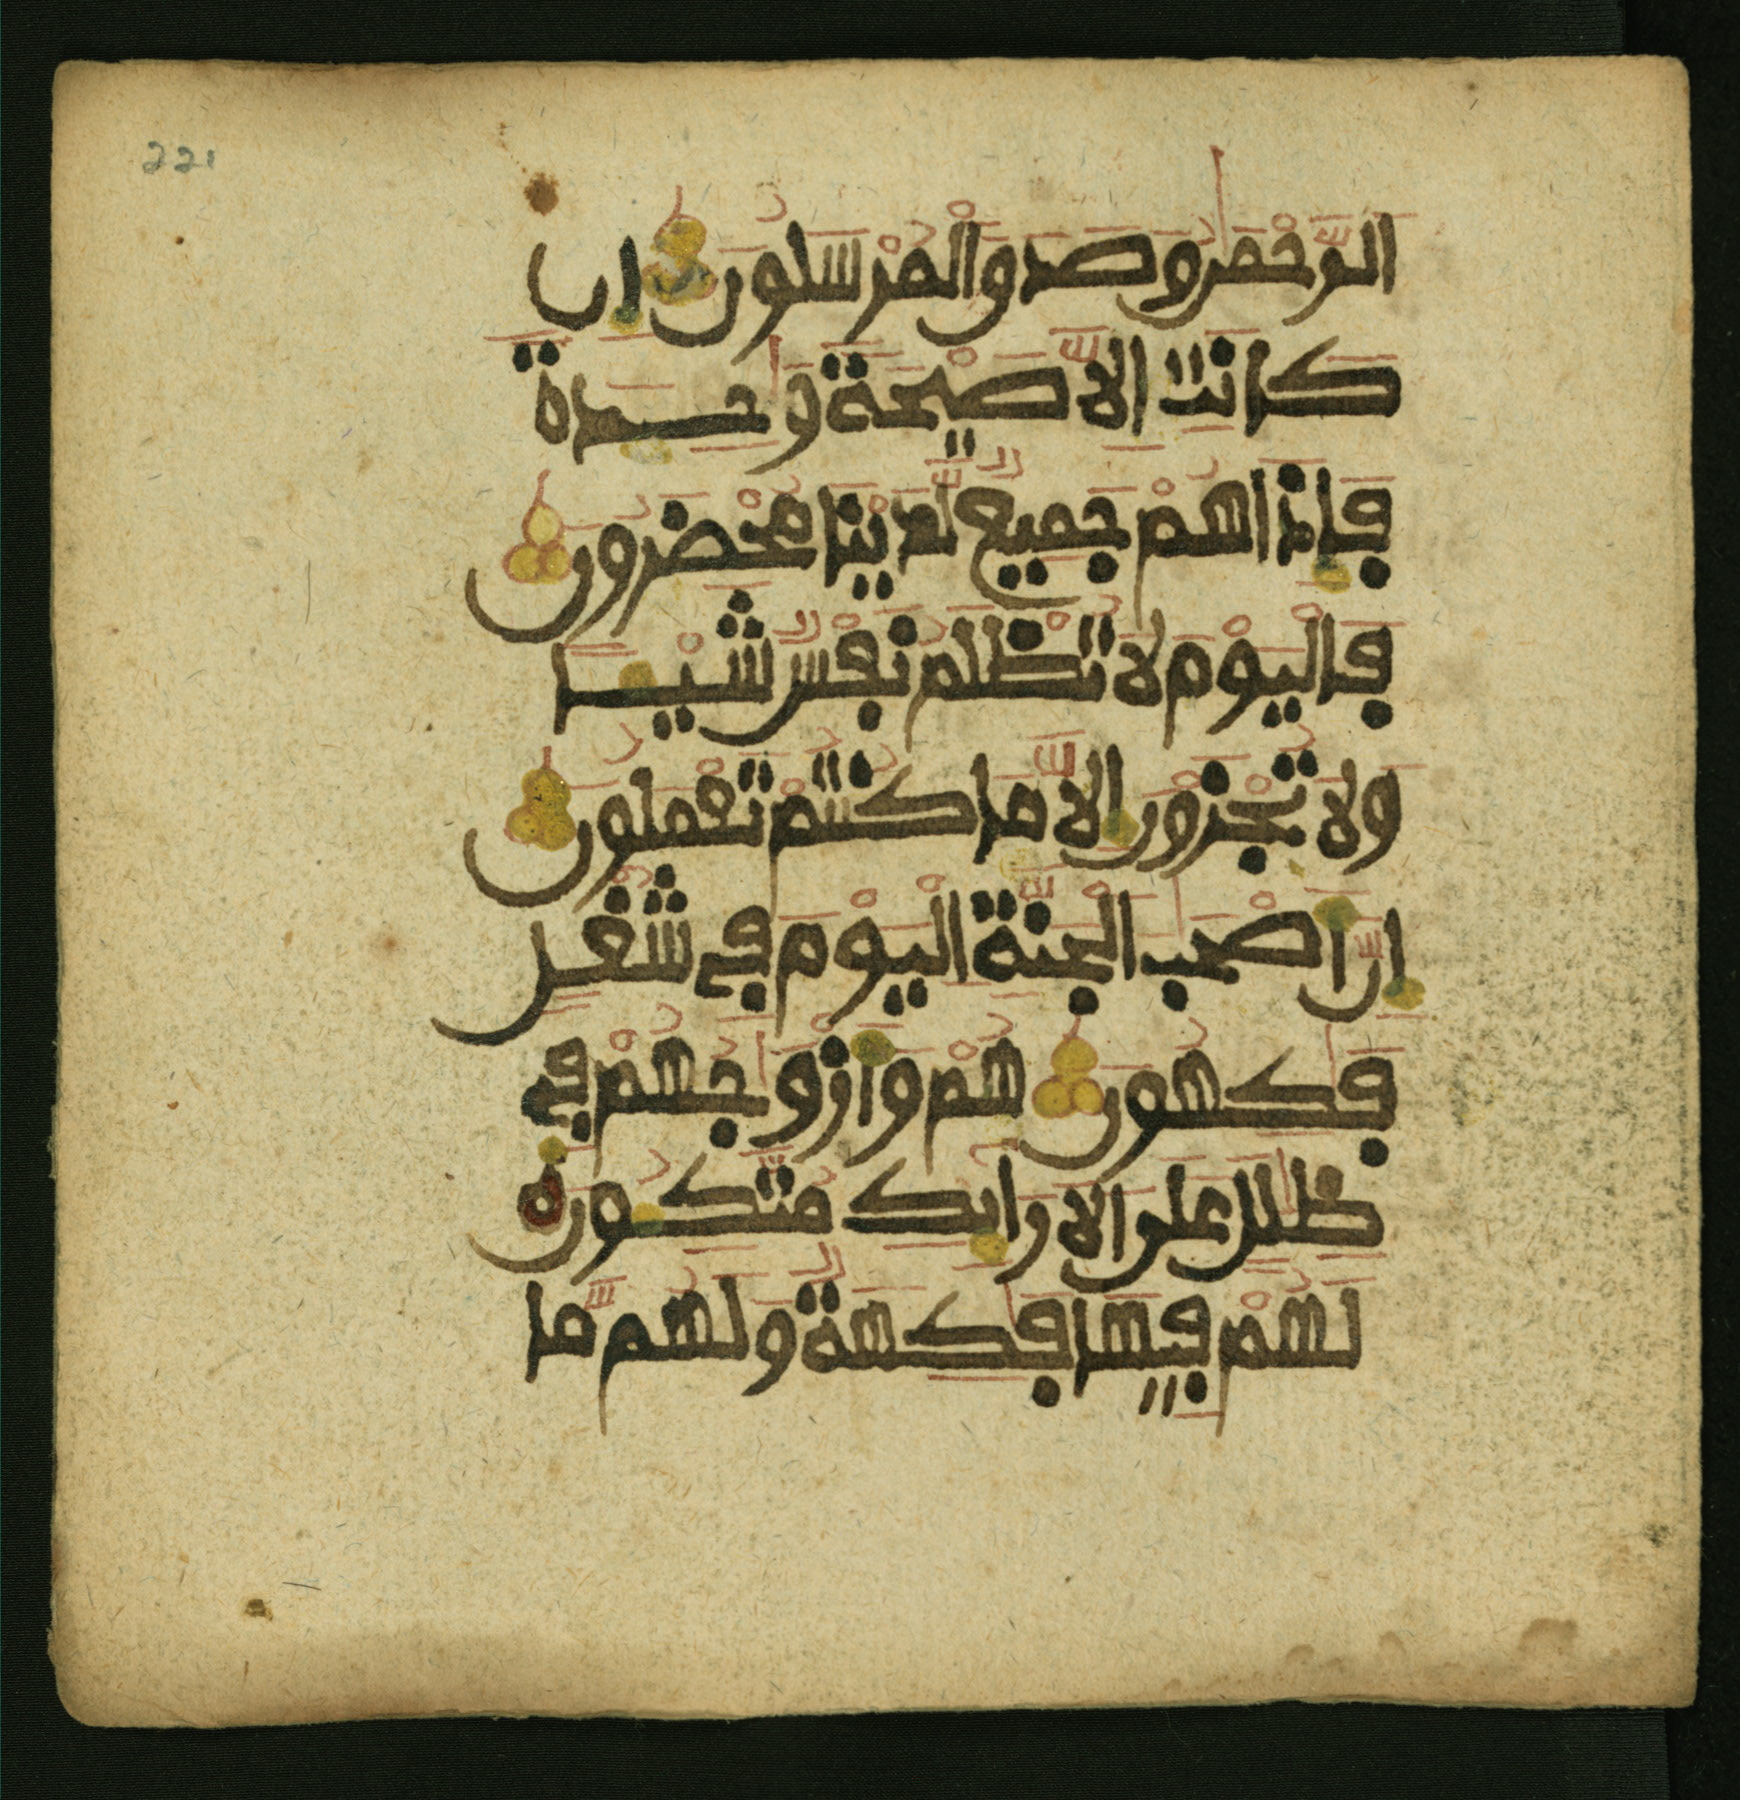 221
الرَّحْمَٰنُ وَصَدَقَ ٱلْمُرْسَلُونَ إِن
كَانَتْ إِلَّا صَيْحَةً وَٰحِدَةً
فَإِذَا هُمْ جَمِيعٌ لَّدَيْنَا مُحْضَرُونَ
فَالْيَوْمَ لَا تُظْلَمُ نَفْسٌ شَيْـًٔا
وَلَا تُجْزَوْنَ إِلَّا مَا كُنتُمْ تَعْمَلُونَ
إِنَّ أَصْحَٰبَ الْجَنَّةِ الْيَوْمَ فِے شُغْلٍ
فَٰكِهُونَ هُمْ وَأَزْوَٰجُهُمْ فِے
ظِلَٰلٍ عَلَى الْأَرَآئِكِ مُتَّكِـُٔونَ
لَهُمْ فِيهَا فَٰكِهَةٌ وَلَهُم مَّا